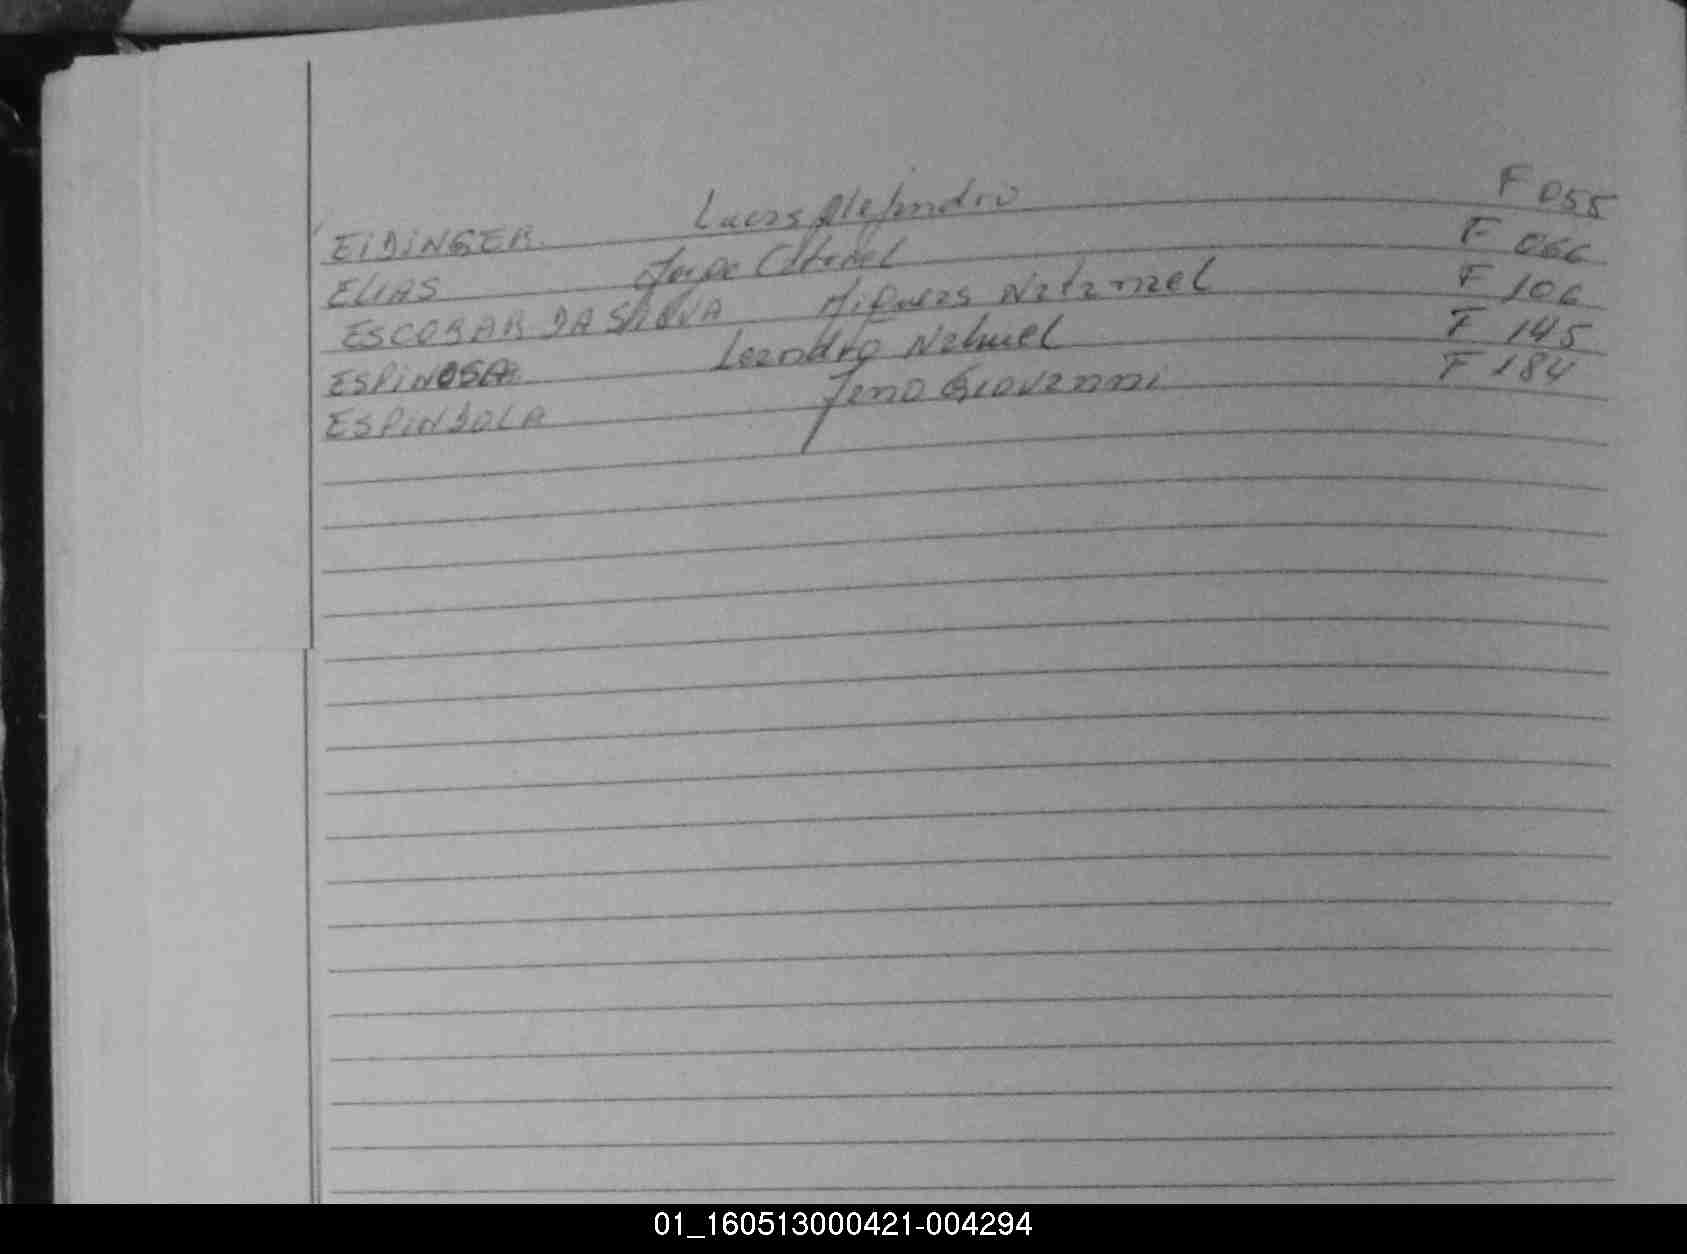 EIDINGER Lucas Alejandro F 055
ELIAS Jorge F 066
ESCOBAR DA SILVA Natanael F 106
ESPINOSA Leandro Nahuel F 145
ESPINDOLA Jeno Giovanni F 184
01_160513000421-004294